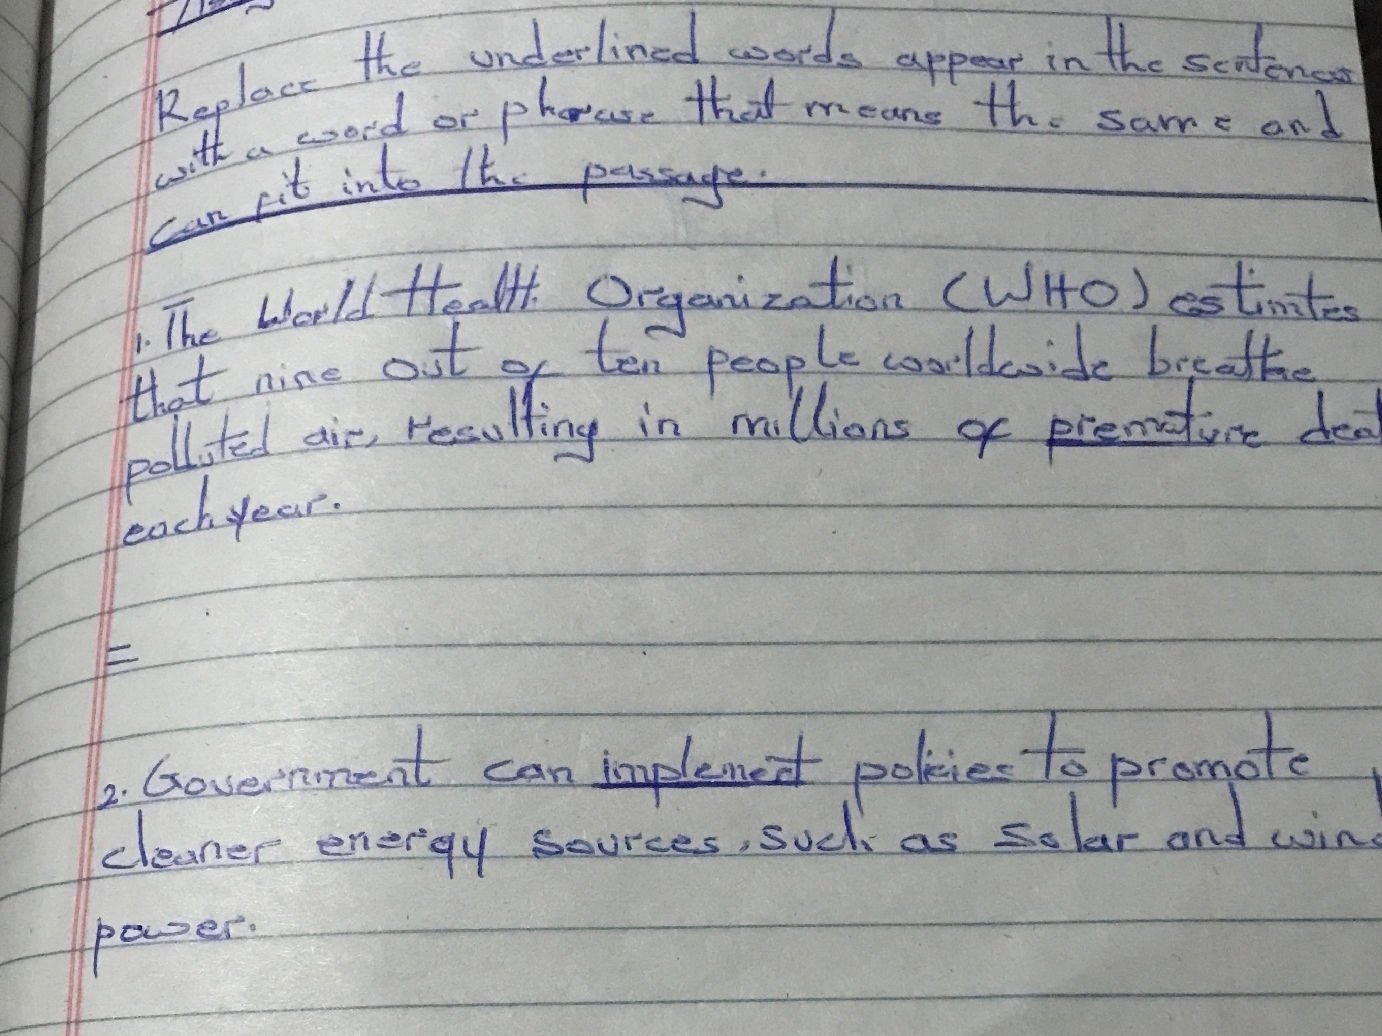 Replace the underlined words appear in the sentences
with a word or phrase that means the same and
can fit into the passage.
1. The World Health Organization (WHO) estimtes
that nine out of ten people worldwide breathe
polluted air, resulting in millions of premature deat
each year.
=
2. Government can implement policies to promote
cleaner energy sources, such as solar and wind
power.